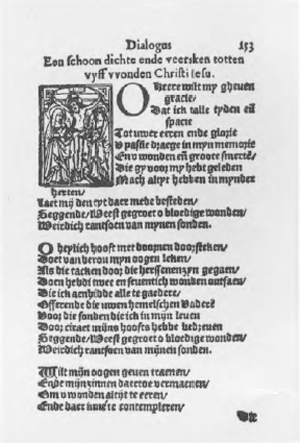 Dialogus 153
Een schoon dichte ende veersken totten
vyff wonden Christi Iesu.
O Heere wilt my gheven
gracie/
Dat ick talle tyden eñ
spacie
Tot uwer eeren ende glorie
U passie draege in myn memorie
Eñ u wonden eñ groote smerte/
Die gy voor my hebt geleden
Mach altyt hebben in mynder
herten/
Laet mij den tyt daer mede besteden/
Seggende/ Weest gegroet o bloedige wonden/
Weirdich rantsoen van mynen sonden.
O heylich hooft met doornen doorsteken/
Doet van berou myn oogen leken/
Als die tacken door die herssenen zyn gegaen/
Doen hebdi twee en seventich wonden ontfaen/
Die ick aenbidde alle te gaedere/
Offerende die uwen hemelschen Vader/
Voor die sonden die ick in mijn leven
Door mijns hoofts hebbe bedreven
Seggende/ Weest gegroet o bloedige wonden/
Weirdich rantsoen van mijnen sonden.
Wilt mijn oogen geven traenen/
Ende mijn zinnen daertoe vermaenen/
Om u wonden altijt te eeren/
Ende daer inne te contempleren/